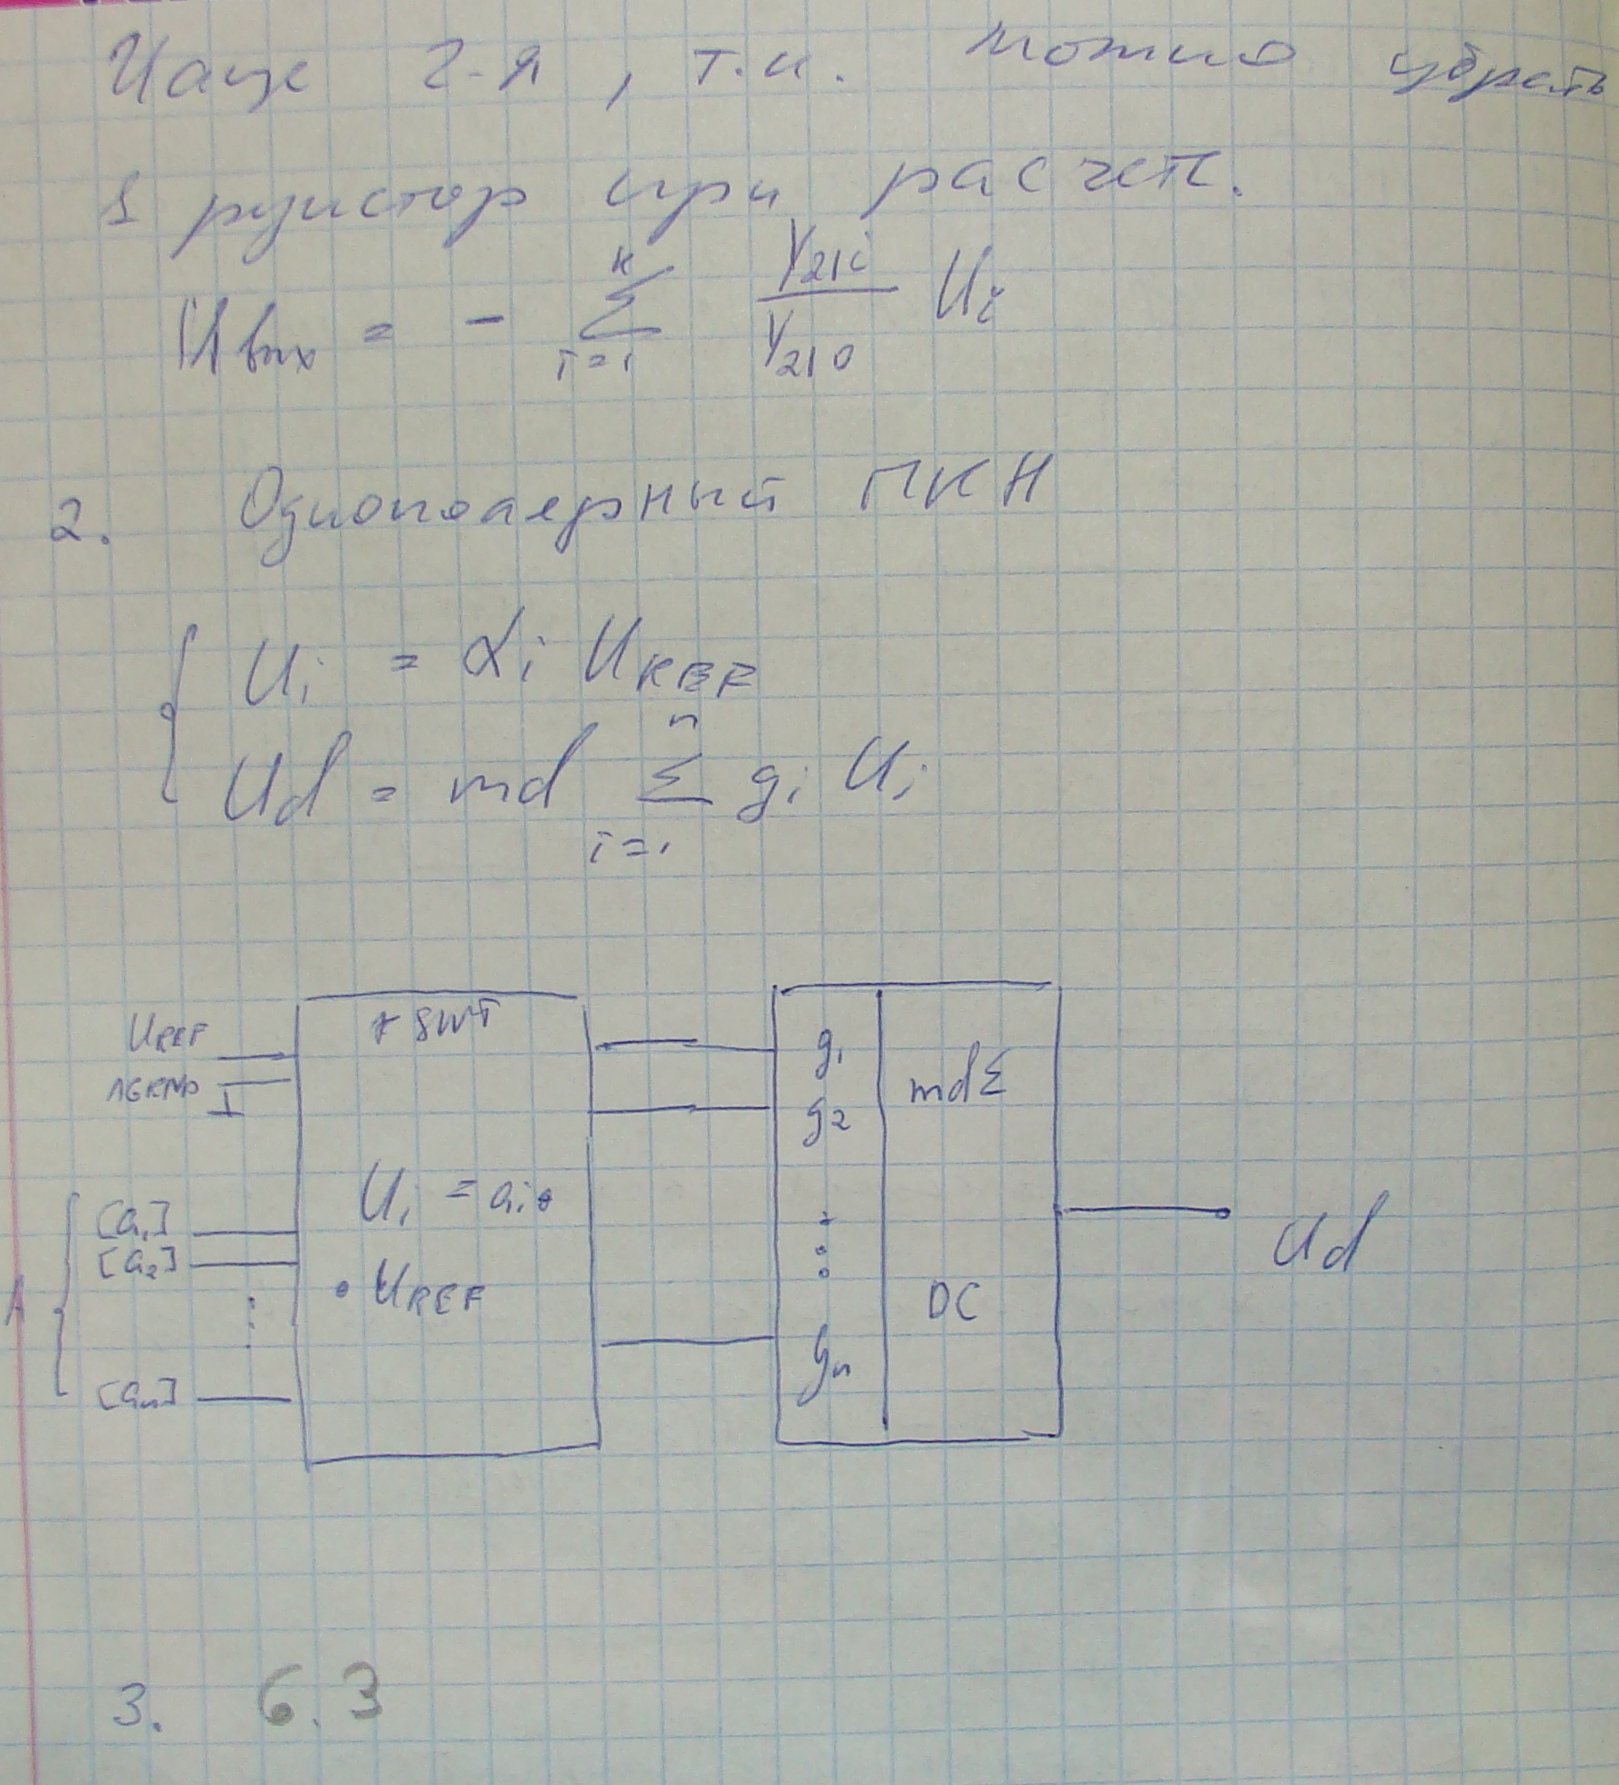 Чаще 2-я, т.к. можно убрать
1 резистор при расчете.
Uвых = - Σ (i=1, к) Y21i / Y210 Ui
2. Однополярный ПКН
Ui = αi UREF
Ud = md Σ (i=1, n) gi Ui
SWT
UREF
AGRND
Ui = ai •
• UREF
A
[a1]
[a2]
⋮
[an]
g1
g2
⋮
gn
mdΣ
DC
Ud
3. 6.3